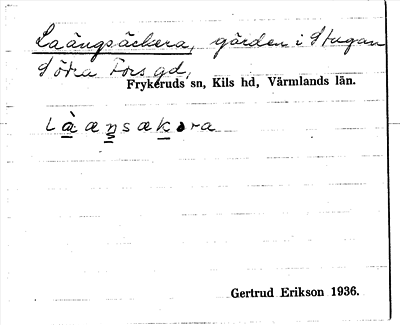 Laängsäckera, gärden i Stugan
Södra Fors gd,
Frykeruds sn, Kils hd, Värmlands län.
Gertrud Erikson 1936.